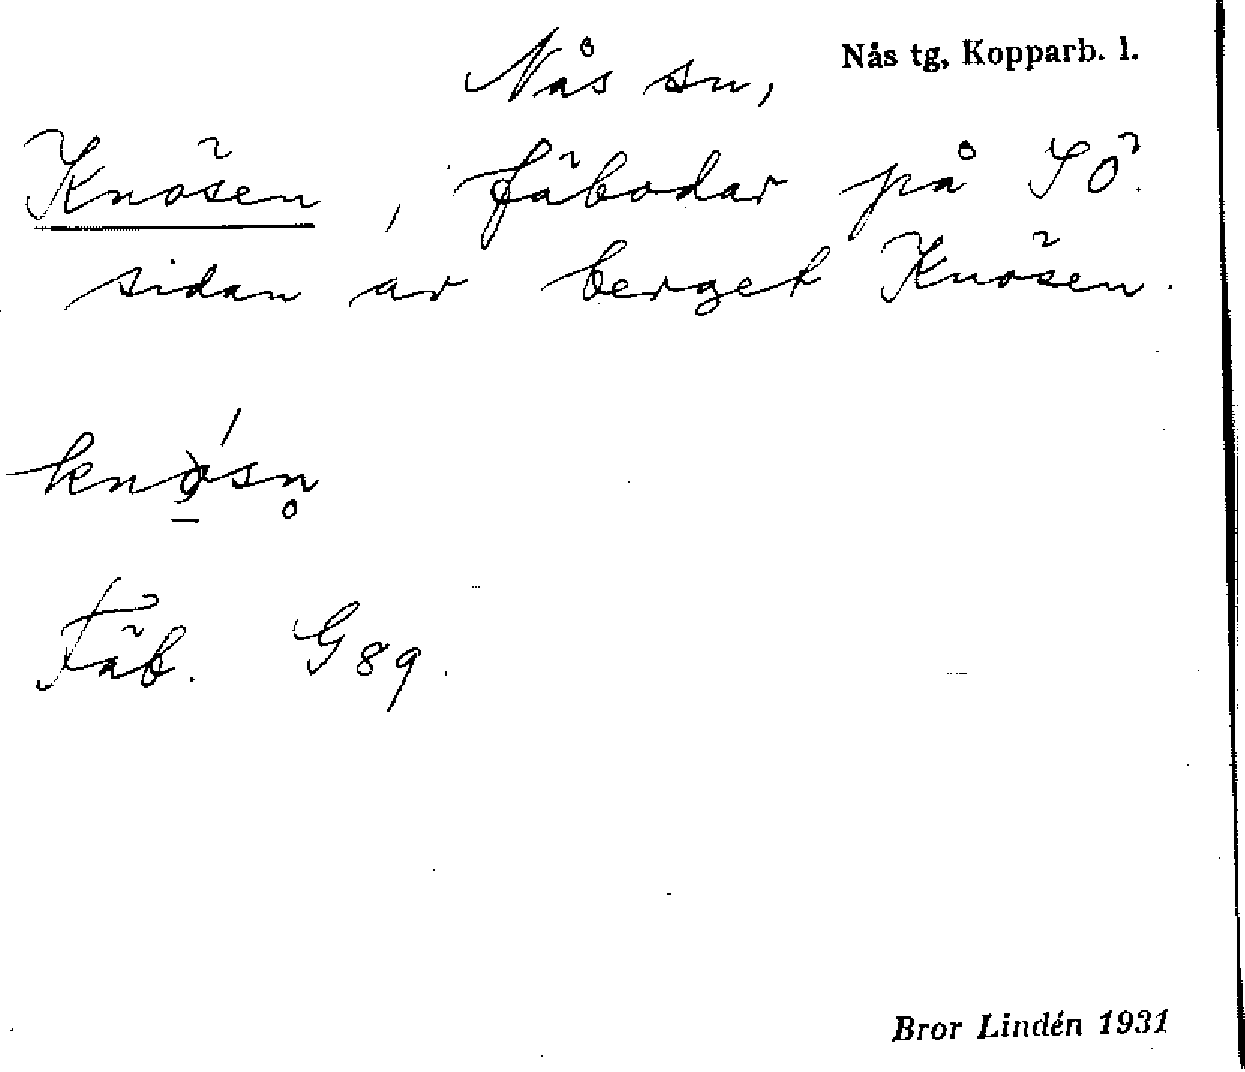 Nås sn, Nås tg, Kopparb. l.
Knösen, fäbodar på SÖ.
sidan av berget Knösen.
Fäb. G89.
Bror Lindén 1931